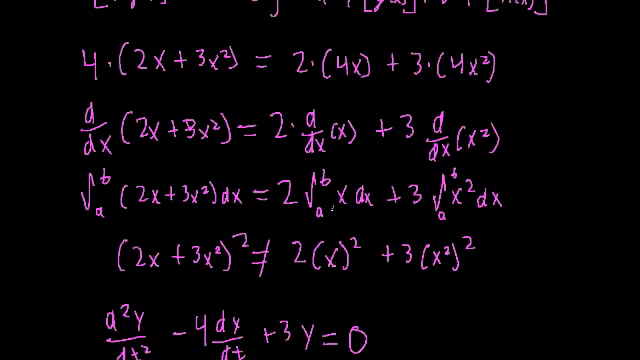 4·(2x+3x²) = 2·(4x) + 3·(4x²)
d/dx (2x+3x²) = 2·d/dx (x) + 3 d/dx (x²)
∫ₐᵇ (2x+3x²)dx = 2∫ₐᵇ x dx + 3∫ₐᵇ x² dx
(2x+3x²)² ≠ 2(x)² + 3(x²)²
d²y/dt² - 4 dx/dt + 3y = 0